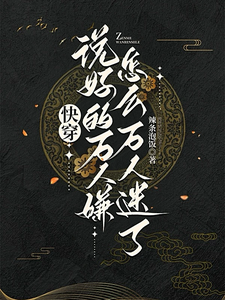 快穿
说好的万人嫌
怎么万人迷了
ZENME
WANRENMILE
辣条泡饭
著